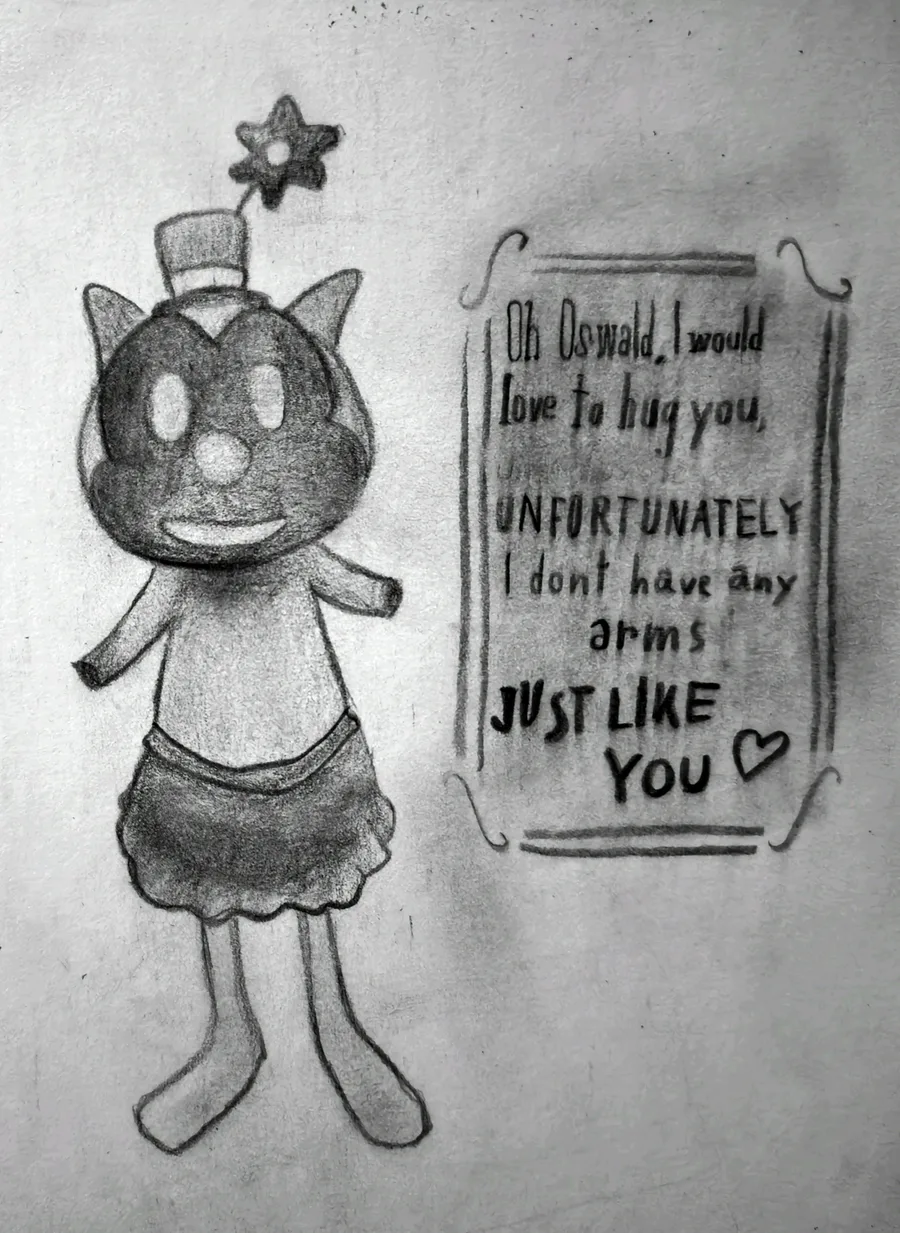 Oh Oswald, I would
love to hug you,
UNFORTUNATELY
I dont have any
arms
JUST LIKE
YOU ♡